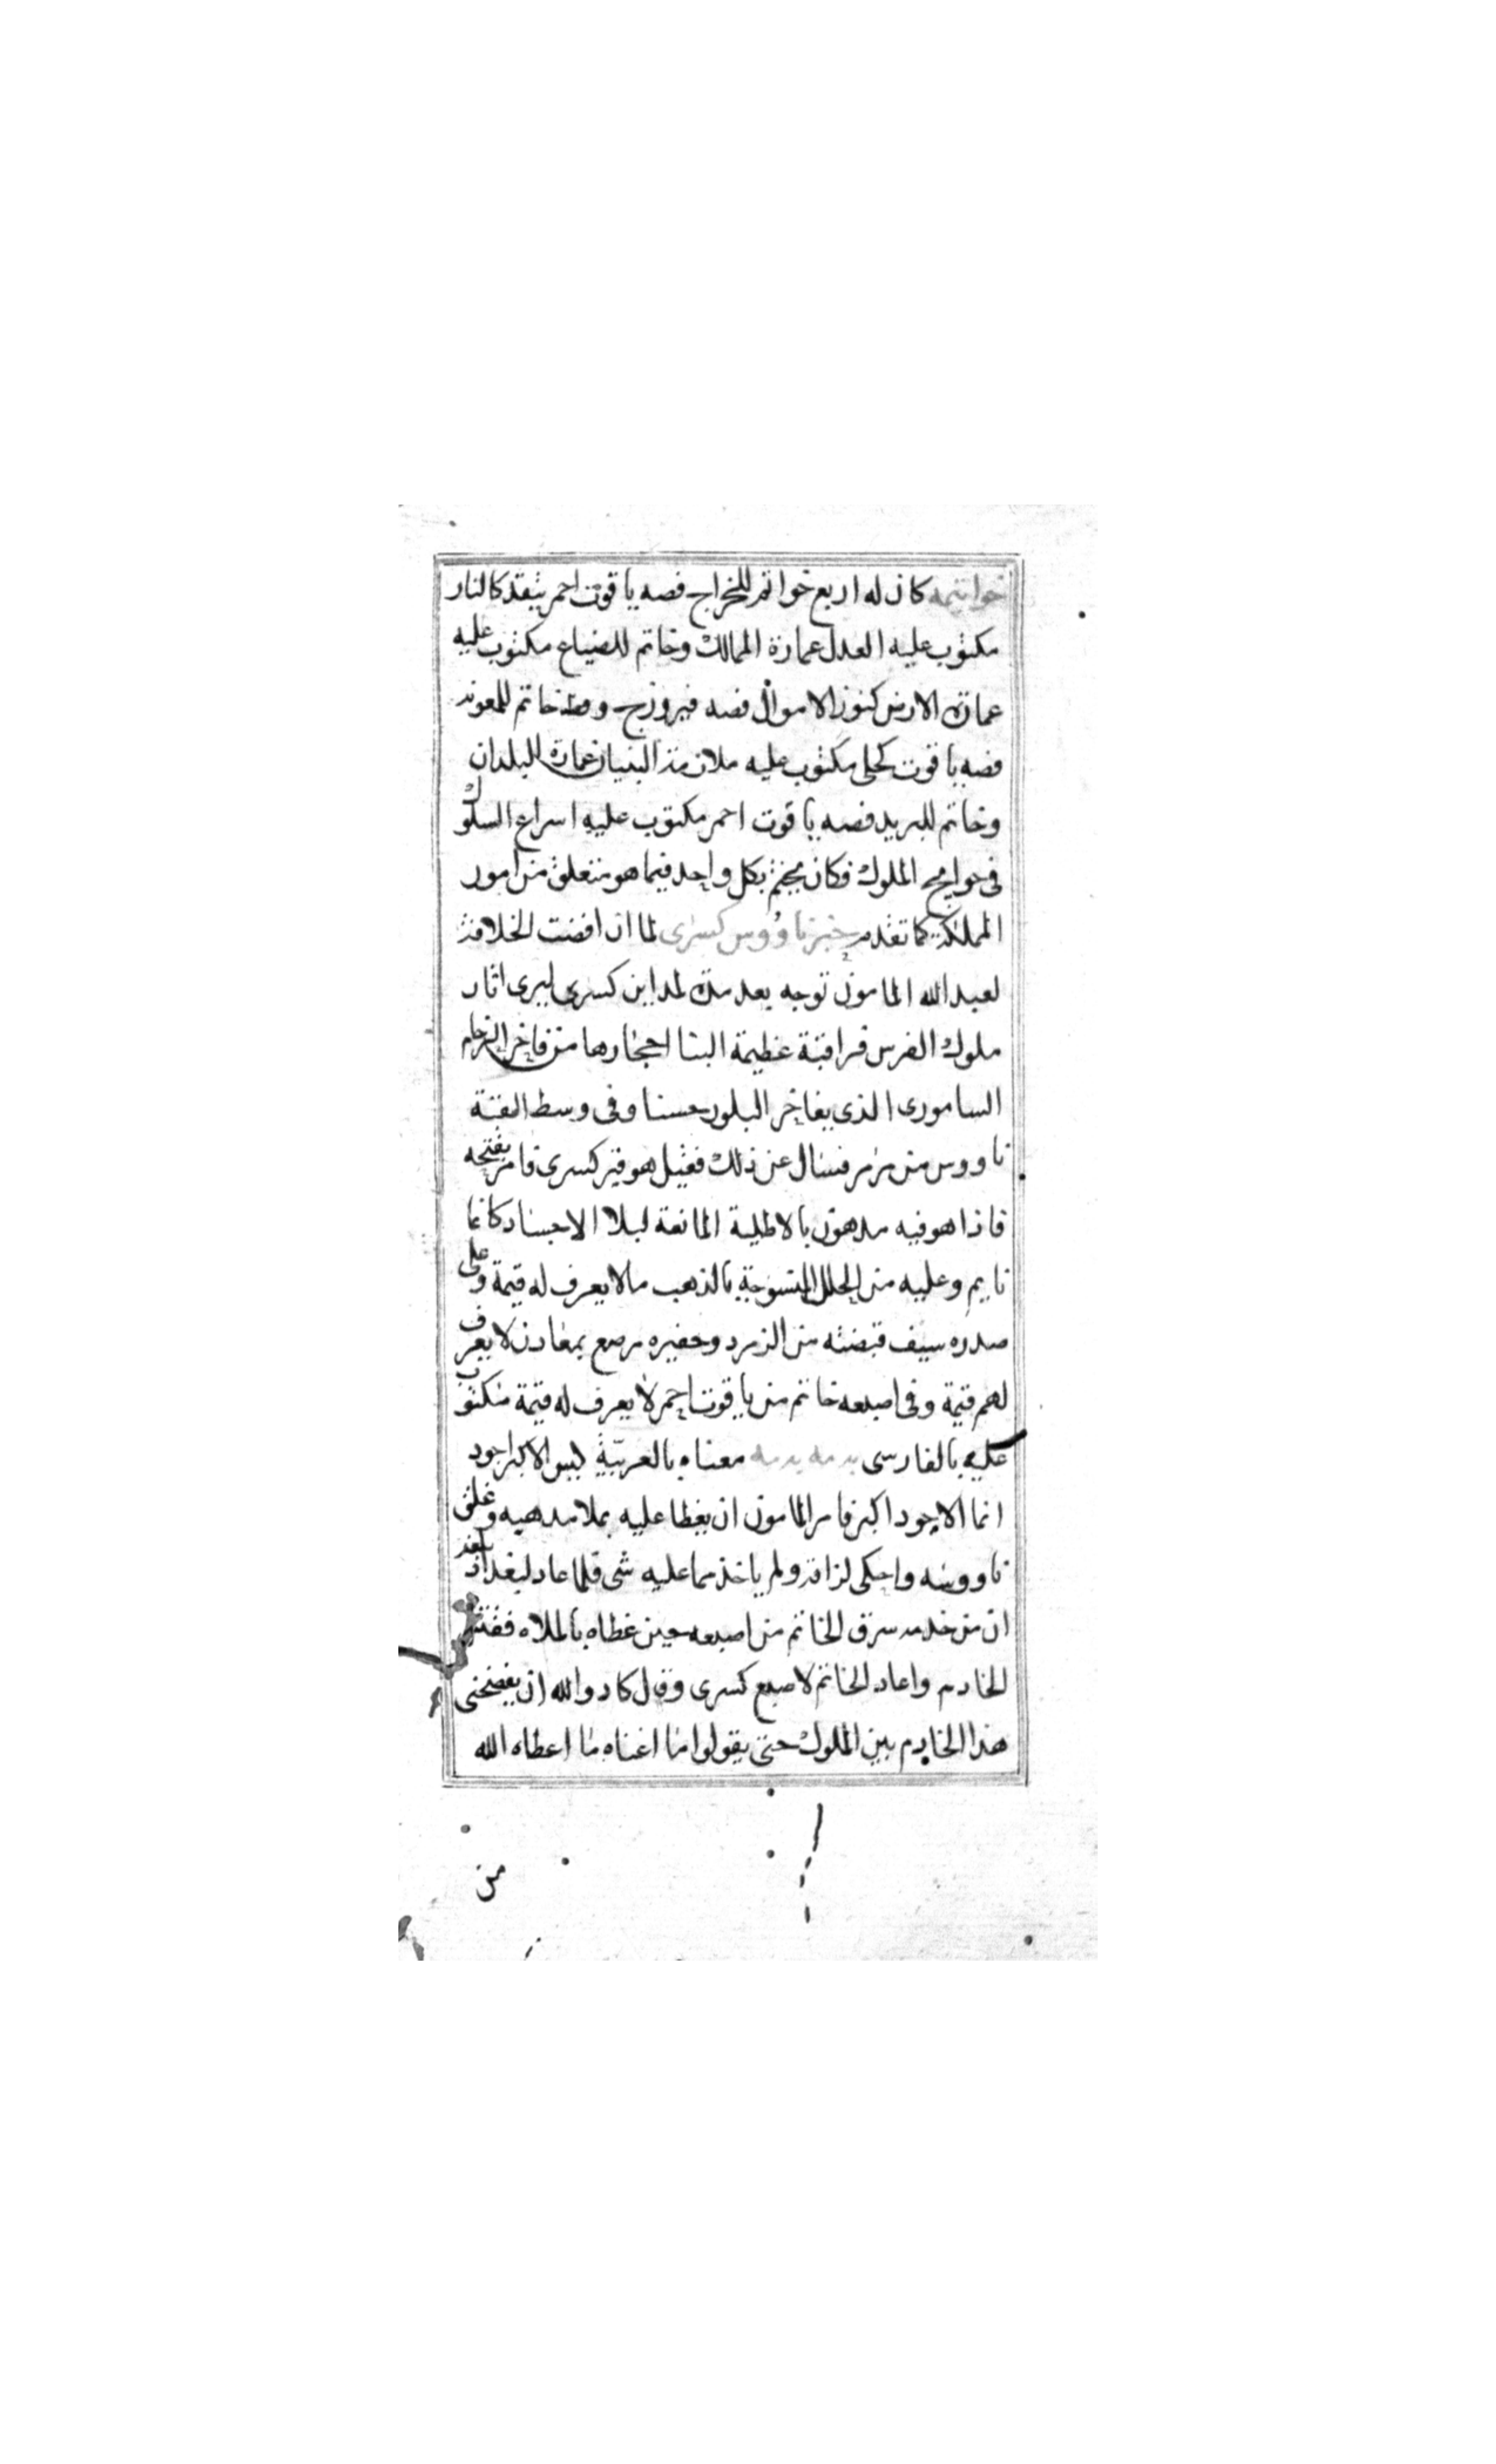 خواتيمه كان له اربع خواتم للخراج فصه ياقوت احمر يتقد كالنار
مكتوب عليه العدل عمارة الممالك وخاتم للضياع مكتوب عليه
عمارة الارض كنوز الاموال فصه فيروزج وخاتم للمعونه
فصه ياقوت كحلى مكتوب عليه البنيان عمارة البلدان
وخاتم للبريد فصه ياقوت احمر مكتوب عليه اسراع السلوك
فى حوايج الملوك فكان يختم بكل واحد فيما هو متعلق من امور
المملكة كما تقدم خبر ناووس كسرى لما ان افضت الخلافة
لعبد الله المامون توجه بعد مدة لمداين كسرى ليرى اثار
ملوك الفرس فرا قبة عظيمة البنا احجارها من فاخر الرخام
السامورى الذى يفاخر البلور حسنا وفى وسط القبة
ناووس من مرمر فسال عن ذلك فقيل هو قبر كسرى فامر بفتحه
فاذا هو فيه مدهون بالاطلية المانعة لبلا الاجساد كانما
نايم وعليه من الحلل المنسوجة بالذهب ما لا يعرف له قيمة وعلى
صدره سيف قبضته من الزمرد وحفيره مرصع بمعادن لا يعرف
لهم قيمة وفى اصبعه خاتم من ياقوت احمر لا يعرف له قيمة مكتوب
عليه بالفارسى به مه به مه معناه بالعربية ليس الاكبر اجود
انما الاجود اكبر فامر المامون ان يغطا عليه بملا مدهبه وغلق
ناووسه واحكى لزاقه ولم ياخذ مما عليه شى فلما عاد لبغداد بلغه
ان من خدمه سرق الخاتم من اصبعه حين غطاه بالملاه فقتل
الخادم واعاد الخاتم لاصبع كسرى وقال كاد والله ان يفضحنى
هذا الخادم بين الملوك حتى يقولوا ما اغناه ما اعطاه الله
من